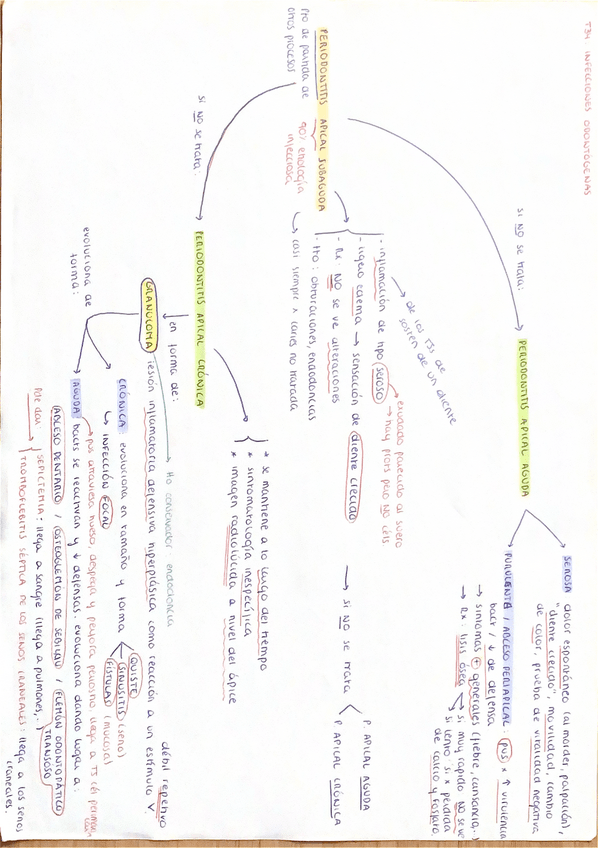 T34 INFECCIONES ODONTÓGENAS
PERIODONTITIS APICAL SUBAGUDA
Pto de partida de
otros procesos
gol etiología
infecciosa
↳ casi siempre x caries no tratada
- inflamación de tipo seroso
de los TSJ de
sostén de un diente
exudado parecido al suero
→ hay ptors pero NO céls
- ligero edema → sensación de diente crecido
- Rx: NO se ve alteraciones
- tto: obturaciones, endodoncias
→ SI NO se trata
P. APICAL AGUDA
P. APICAL CRÓNICA
SI NO se trata:
PERIODONTITIS APICAL AGUDA
SEROSA dolor espontáneo (al morder, palpación),
"diente crecido", movilidad, cambio
de color, prueba de vitalidad negativa
PURULENTA / ABCESO PERIAPICAL: pus x ↑ virulencia
bact / ↓ de defensa
→ síntomas + generales (fiebre, cansancio,..)
→ Rx: lisis ósea
si muy rápido NO se ve
si lento, sí x pérdida
de calcio y fosfato
SI NO se trata:
PERIODONTITIS APICAL CRÓNICA
* se mantiene a lo largo del tiempo
* sintomatología inespecífica
* imagen radiolúcida a nivel del ápice
en forma de:
GRANULOMA lesión inflamatoria defensiva hiperplásica como reacción a un estímulo
débil repetivo
tto conservador: endodoncia
evoluciona de
forma:
CRÓNICA evoluciona en tamaño y forma
QUISTE
SINUSITIS (seno)
FÍSTULAS (mucosa)
↳ INFECCIÓN FOCAL
AGUDA bacts se reactivan y ↓ defensas. evoluciona dando lugar a:
pus atraviesa hueso, despega y perfora periostio. llega a TJ cél
ABCESO DENTARIO / OSTEOFLEMON DE SEBILEAU / FLEMÓN ODONTOPÁTICO
TRANSÓSEO
Pde dar
SEPTICEMIA: llega a sangre (llega a pulmones,..)
TROMBOFLEBITIS SÉPTICA DE LOS SENOS CRANEALES: llega a los senos
craneales.